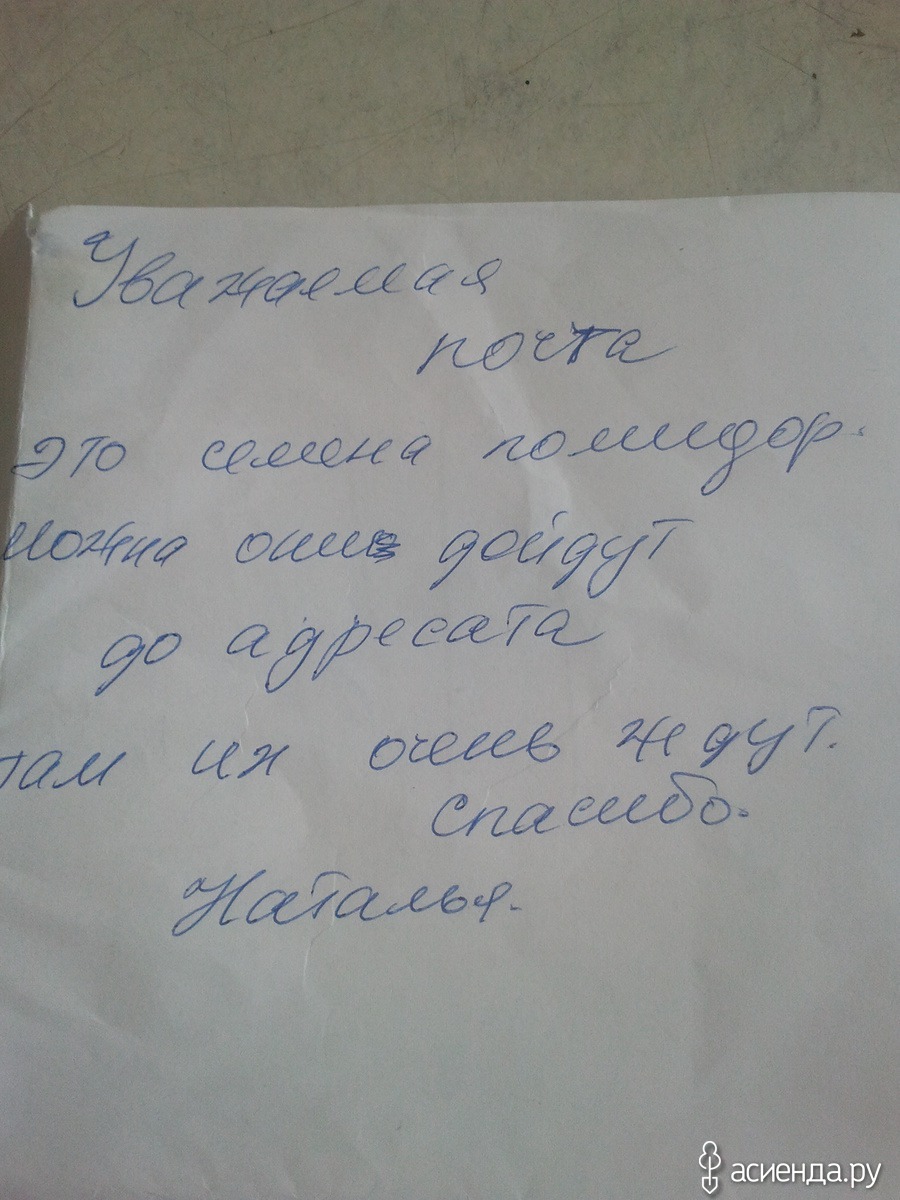 Уважаемая
почта
это семена помидор.
можна они дойдут
до адресата
там их очень ждут.
спасибо.
Наталья.
асиенда.ру